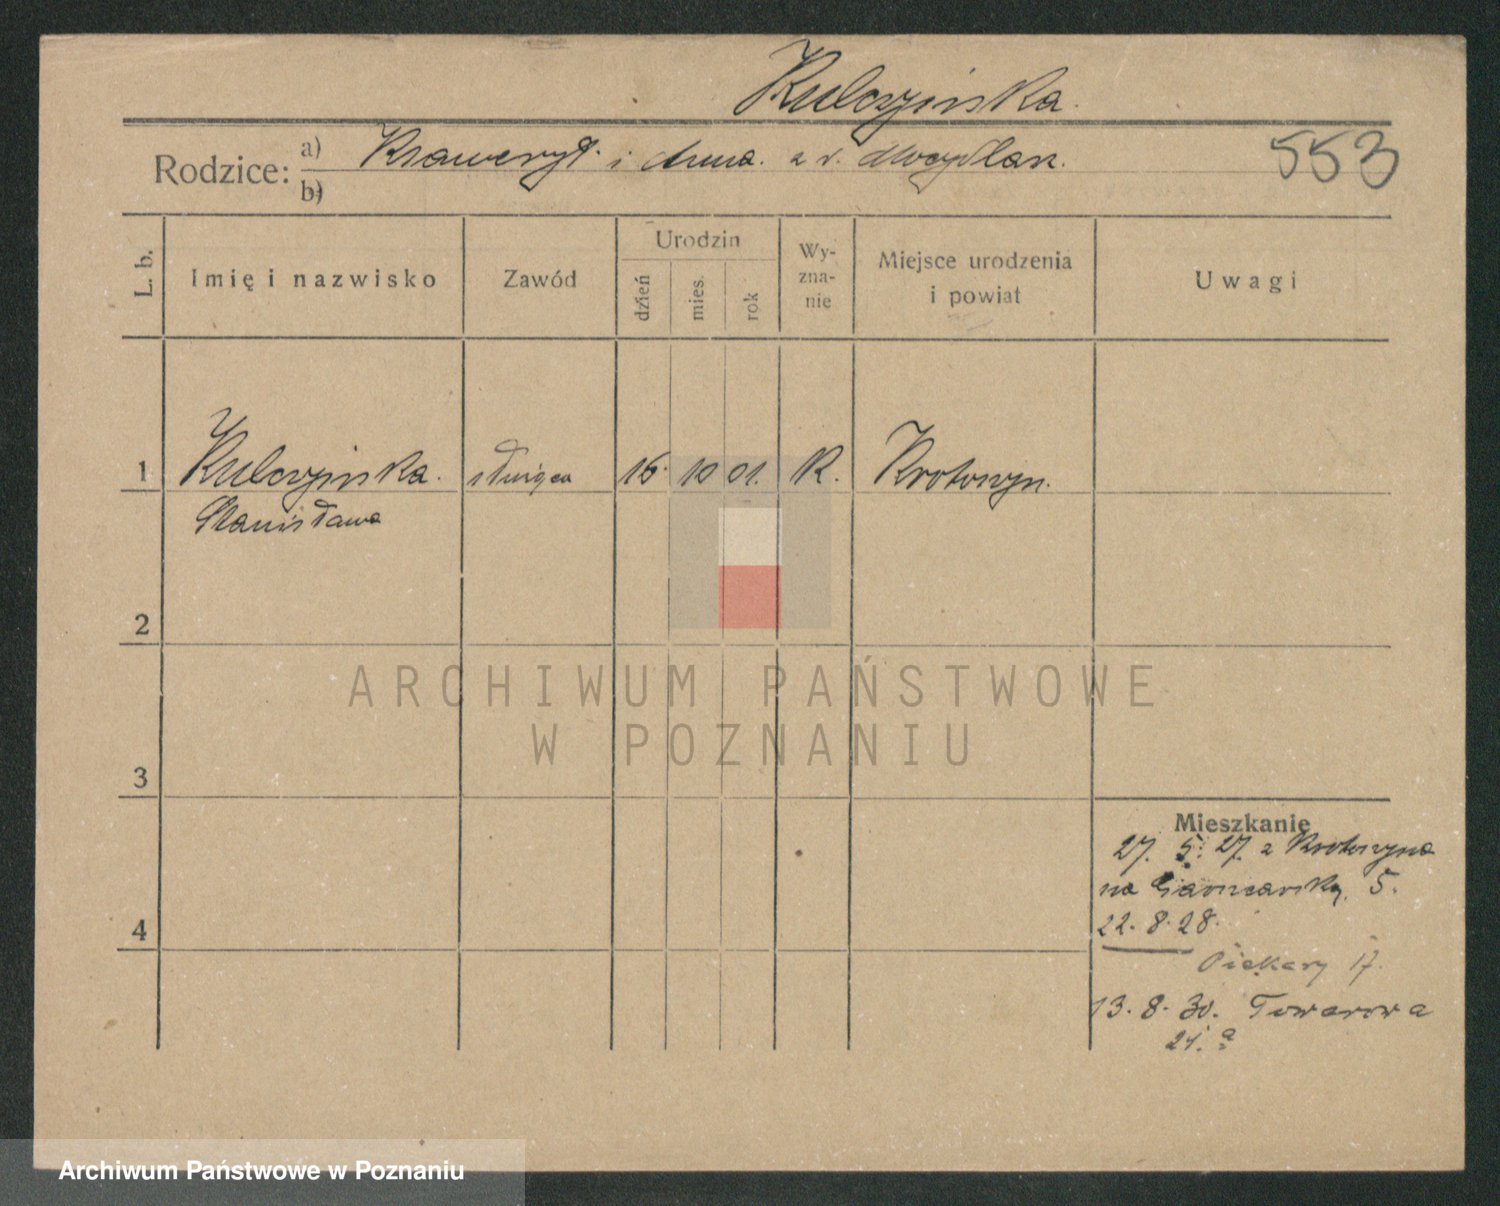 Kulczyińska.
Rodzice: a) Ksawery i Anna. z d.
553
b)
L. b. Imię i nazwisko Zawód Urodzin dzień mies. rok Wyznanie Miejsce urodzenia i powiat Uwagi
1 Kulczyińska. służąca 16. 10 01. K. Krotoszyn.
Stanisława
2
ARCHIWUM PAŃSTWOWE
W POZNANIU
3
Mieszkanie
27. 5. 27. z Krotoszyna
na Garncarską. 5.
4
22. 8. 28.
Piekary 17.
13. 8. 30. Towarowa
21. a
Archiwum Państwowe w Poznaniu